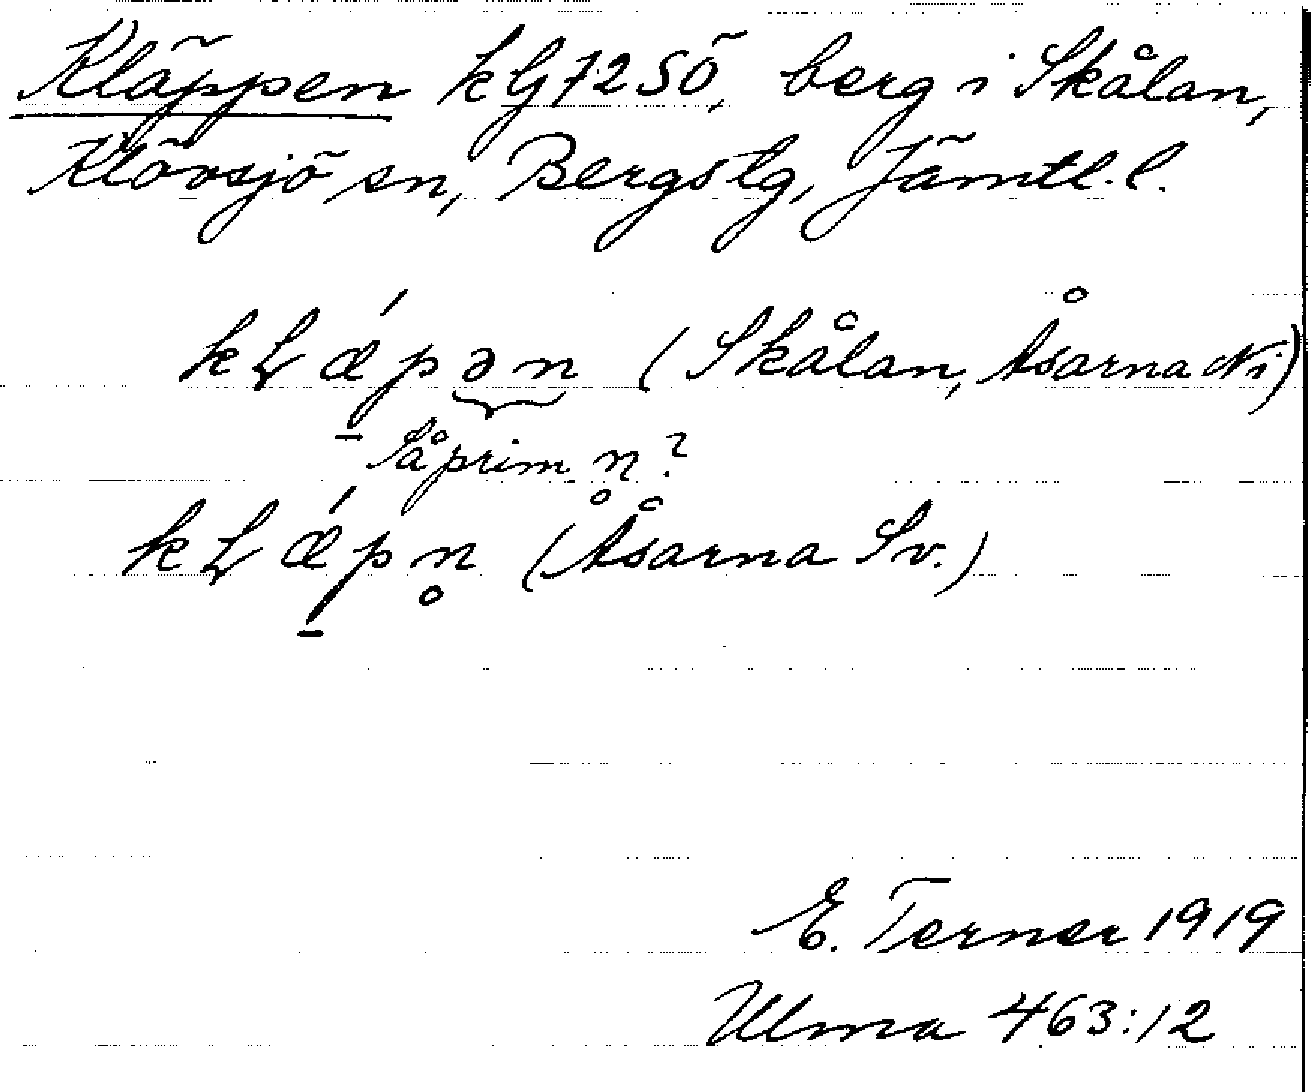 Kläppen k G 72 SÖ, berg i Skålan,
Klövsjö sn, Bergs tg, Jämtl. l.
kɫǽp̠ən (Skålan, Åsarna Ni)
Så prim n̥?
kɫǽp̠n̥ (Åsarna Sv.)
E. Terner 1919
Ulma 463:12